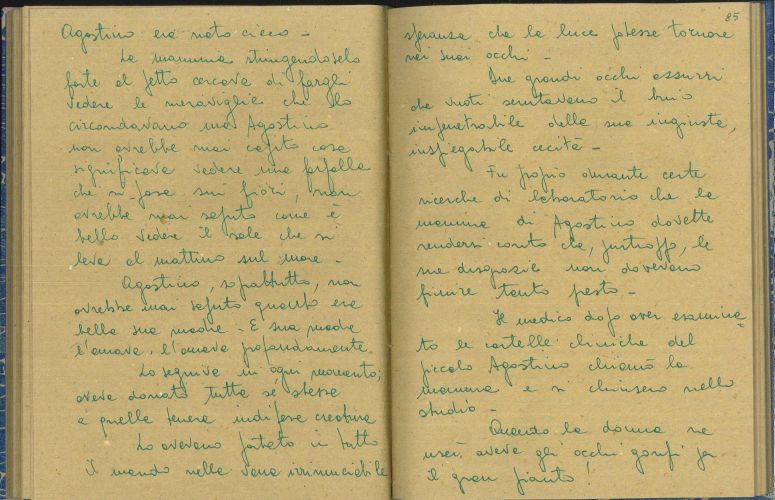 Agostino era nato cieco -
La mamma stringendoselo
forte al petto cercava di fargli
vedere le meraviglie che lo
circondavano ma Agostino
non avrebbe mai capito cosa
significava vedere una farfalla
che si posa sui fiori, non
avrebbe mai saputo come è
bello vedere il sole che si
leva al mattino sul mare -
Agostino, soprattutto, non
avrebbe mai saputo quanto era
bella sua madre - E sua madre
l'amava, l'amava profondamente
Lo seguiva in ogni momento;
aveva donato tutta sé stessa
a quella tenera indifesa creatura
Lo avevano portato in tutto
il mondo nella vana irrinunciabile
85
speranza che la luce potesse tornare
nei suoi occhi -
Due grandi occhi azzurri
che vuoti scrutavano il buio
impenetrabile della sua ingiusta,
inspiegabile cecità -
Fu proprio durante certe
ricerche di laboratorio che la
mamma di Agostino dovette
rendersi conto che, purtroppo, le
sue disgrazie non dovevano
finire tanto presto -
Il medico dopo aver esamina=
to le cartelle cliniche del
piccolo Agostino chiamò la
mamma e si chiusero nello
studio -
Quando la donna ne
uscì aveva gli occhi gonfi per
il gran pianto!